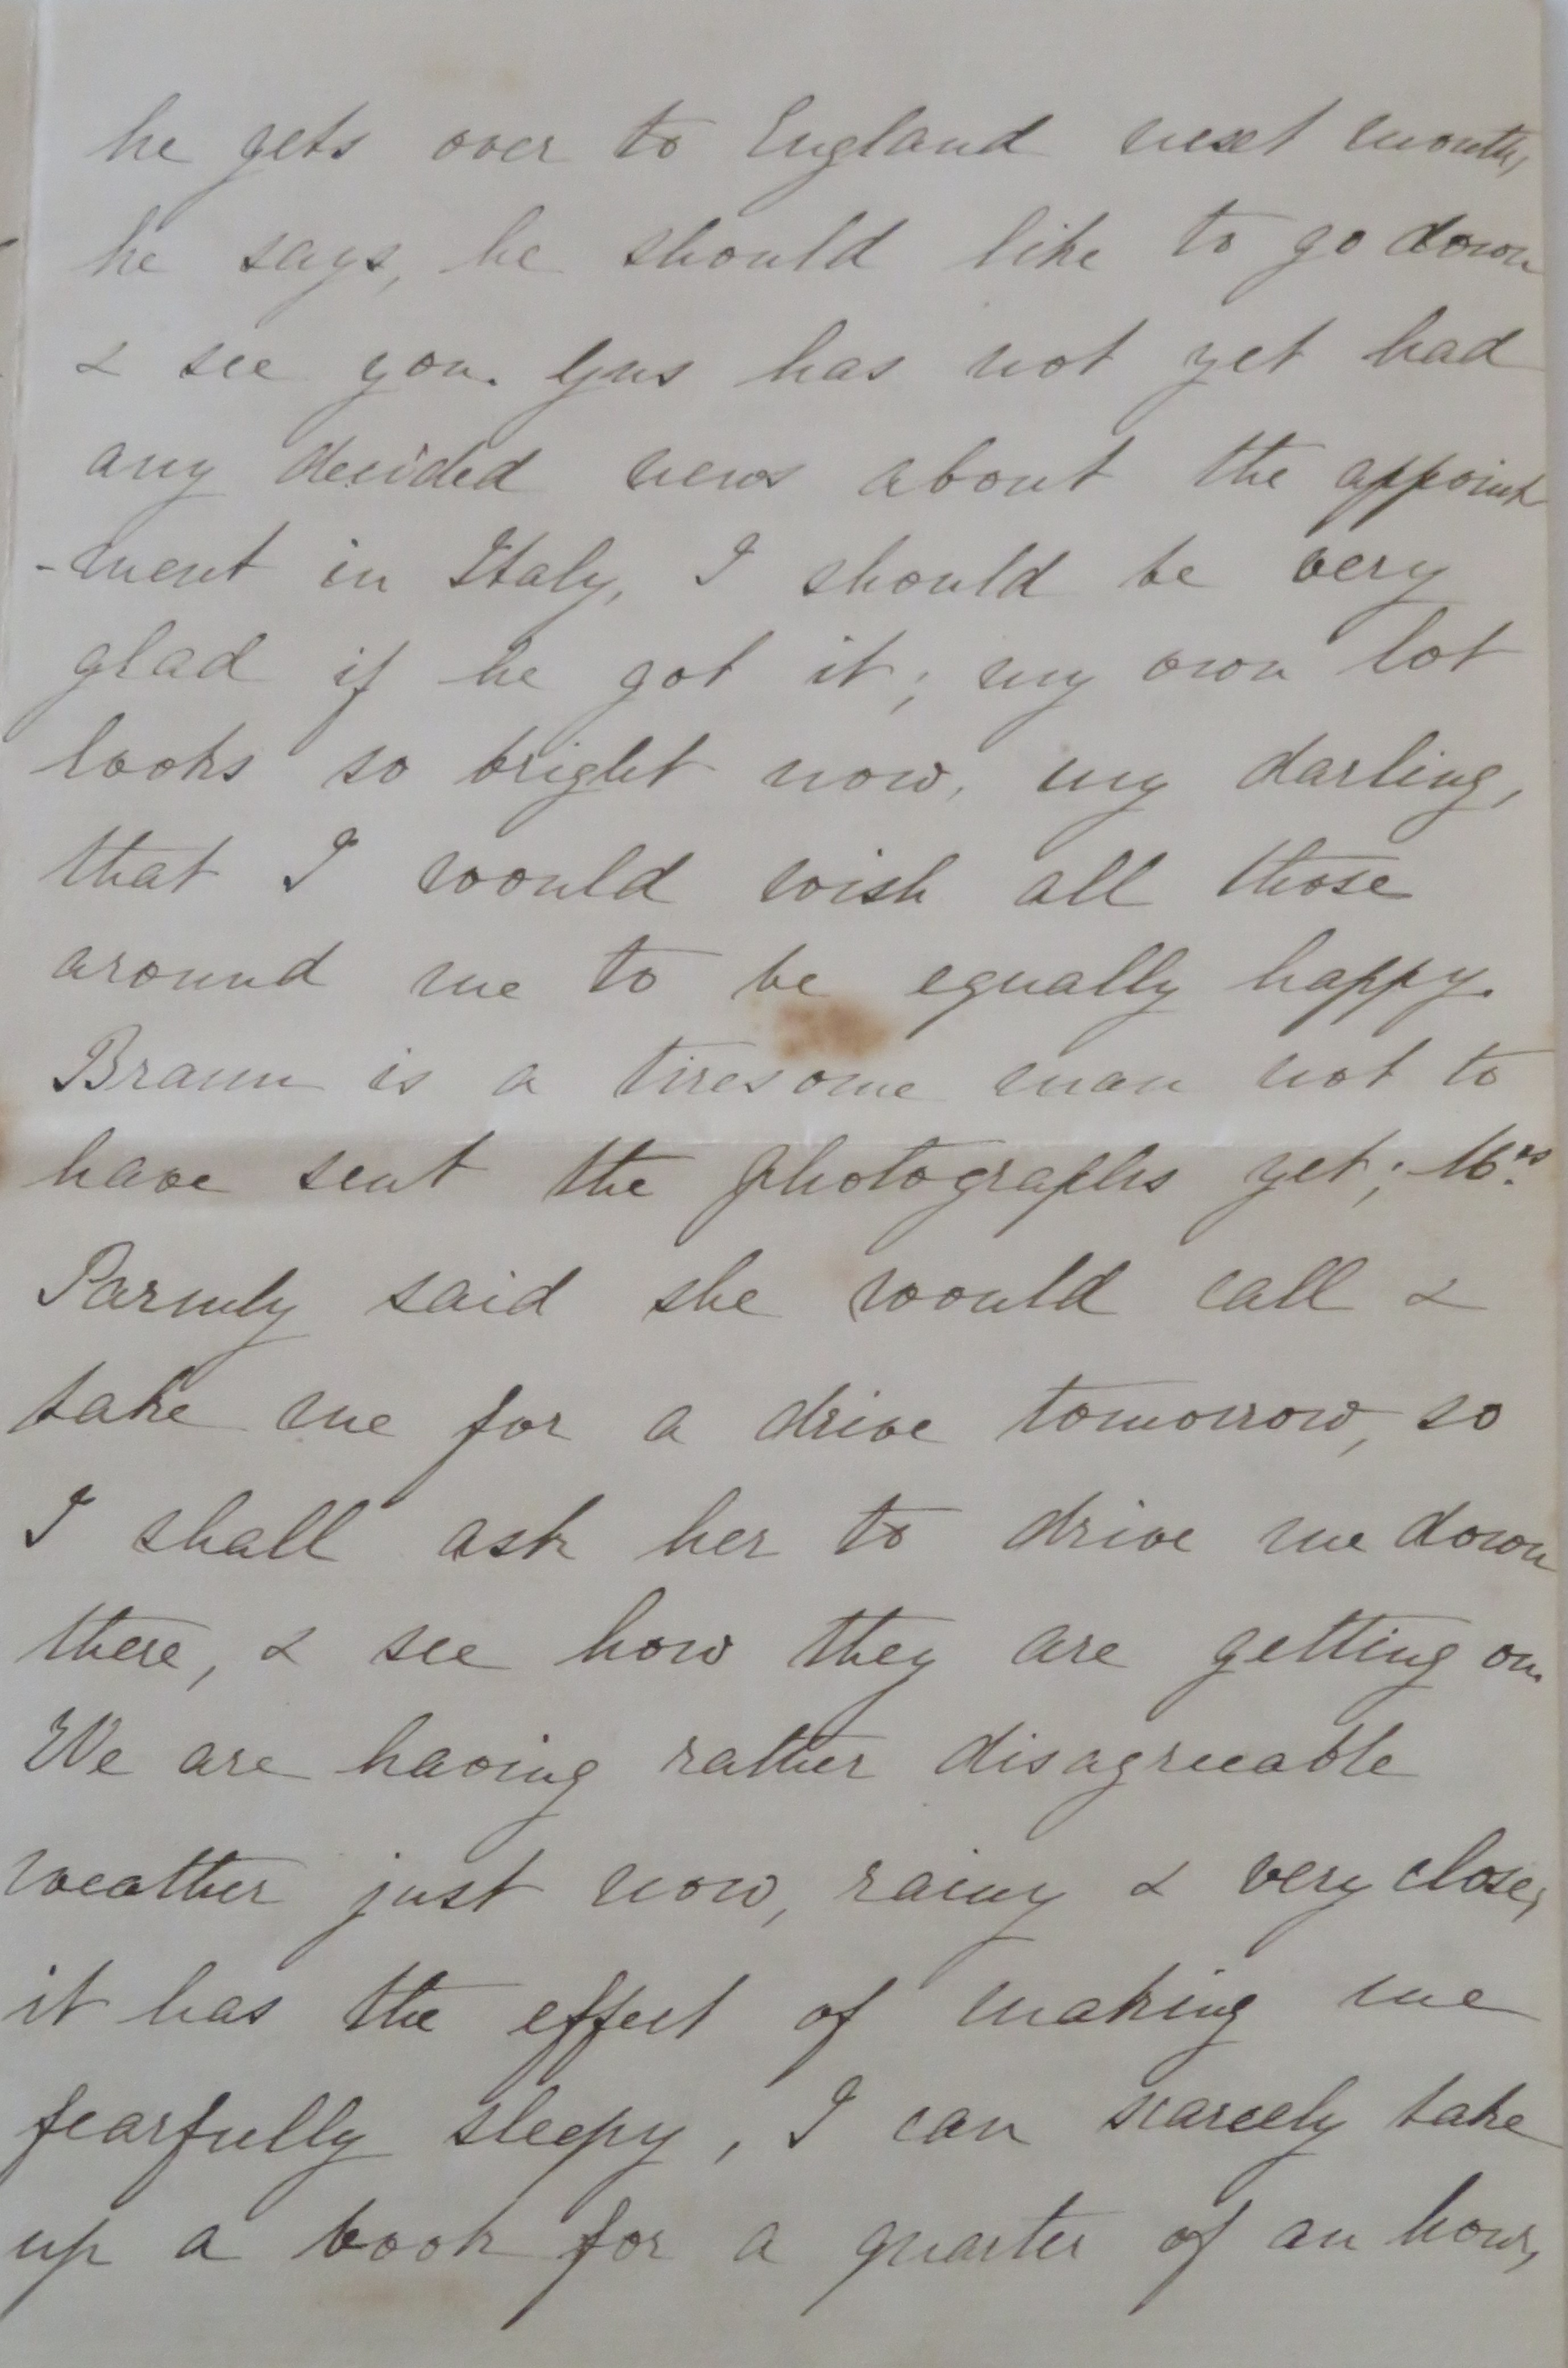 he gets over to England next month,
he says, he should like to go down
& see you. Gus has not yet had
any decided news about the appoint
-ment in Italy, I should be very
glad if he got it; my own lot
looks so bright now, my darling,
that I would wish all those
around me to be equally happy.
Braun is a tiresome man not to
have sent the photographs yet; Mrs.
Parmly said she would call &
take me for a drive tomorrow, so
I shall ask her to drive me down
there, & see how they are getting on.
We are having rather disagreeable
weather just now, rainy & very close,
it has the effect of making me
fearfully sleepy, I can scarcely take
up a book for a quarter of an hour,